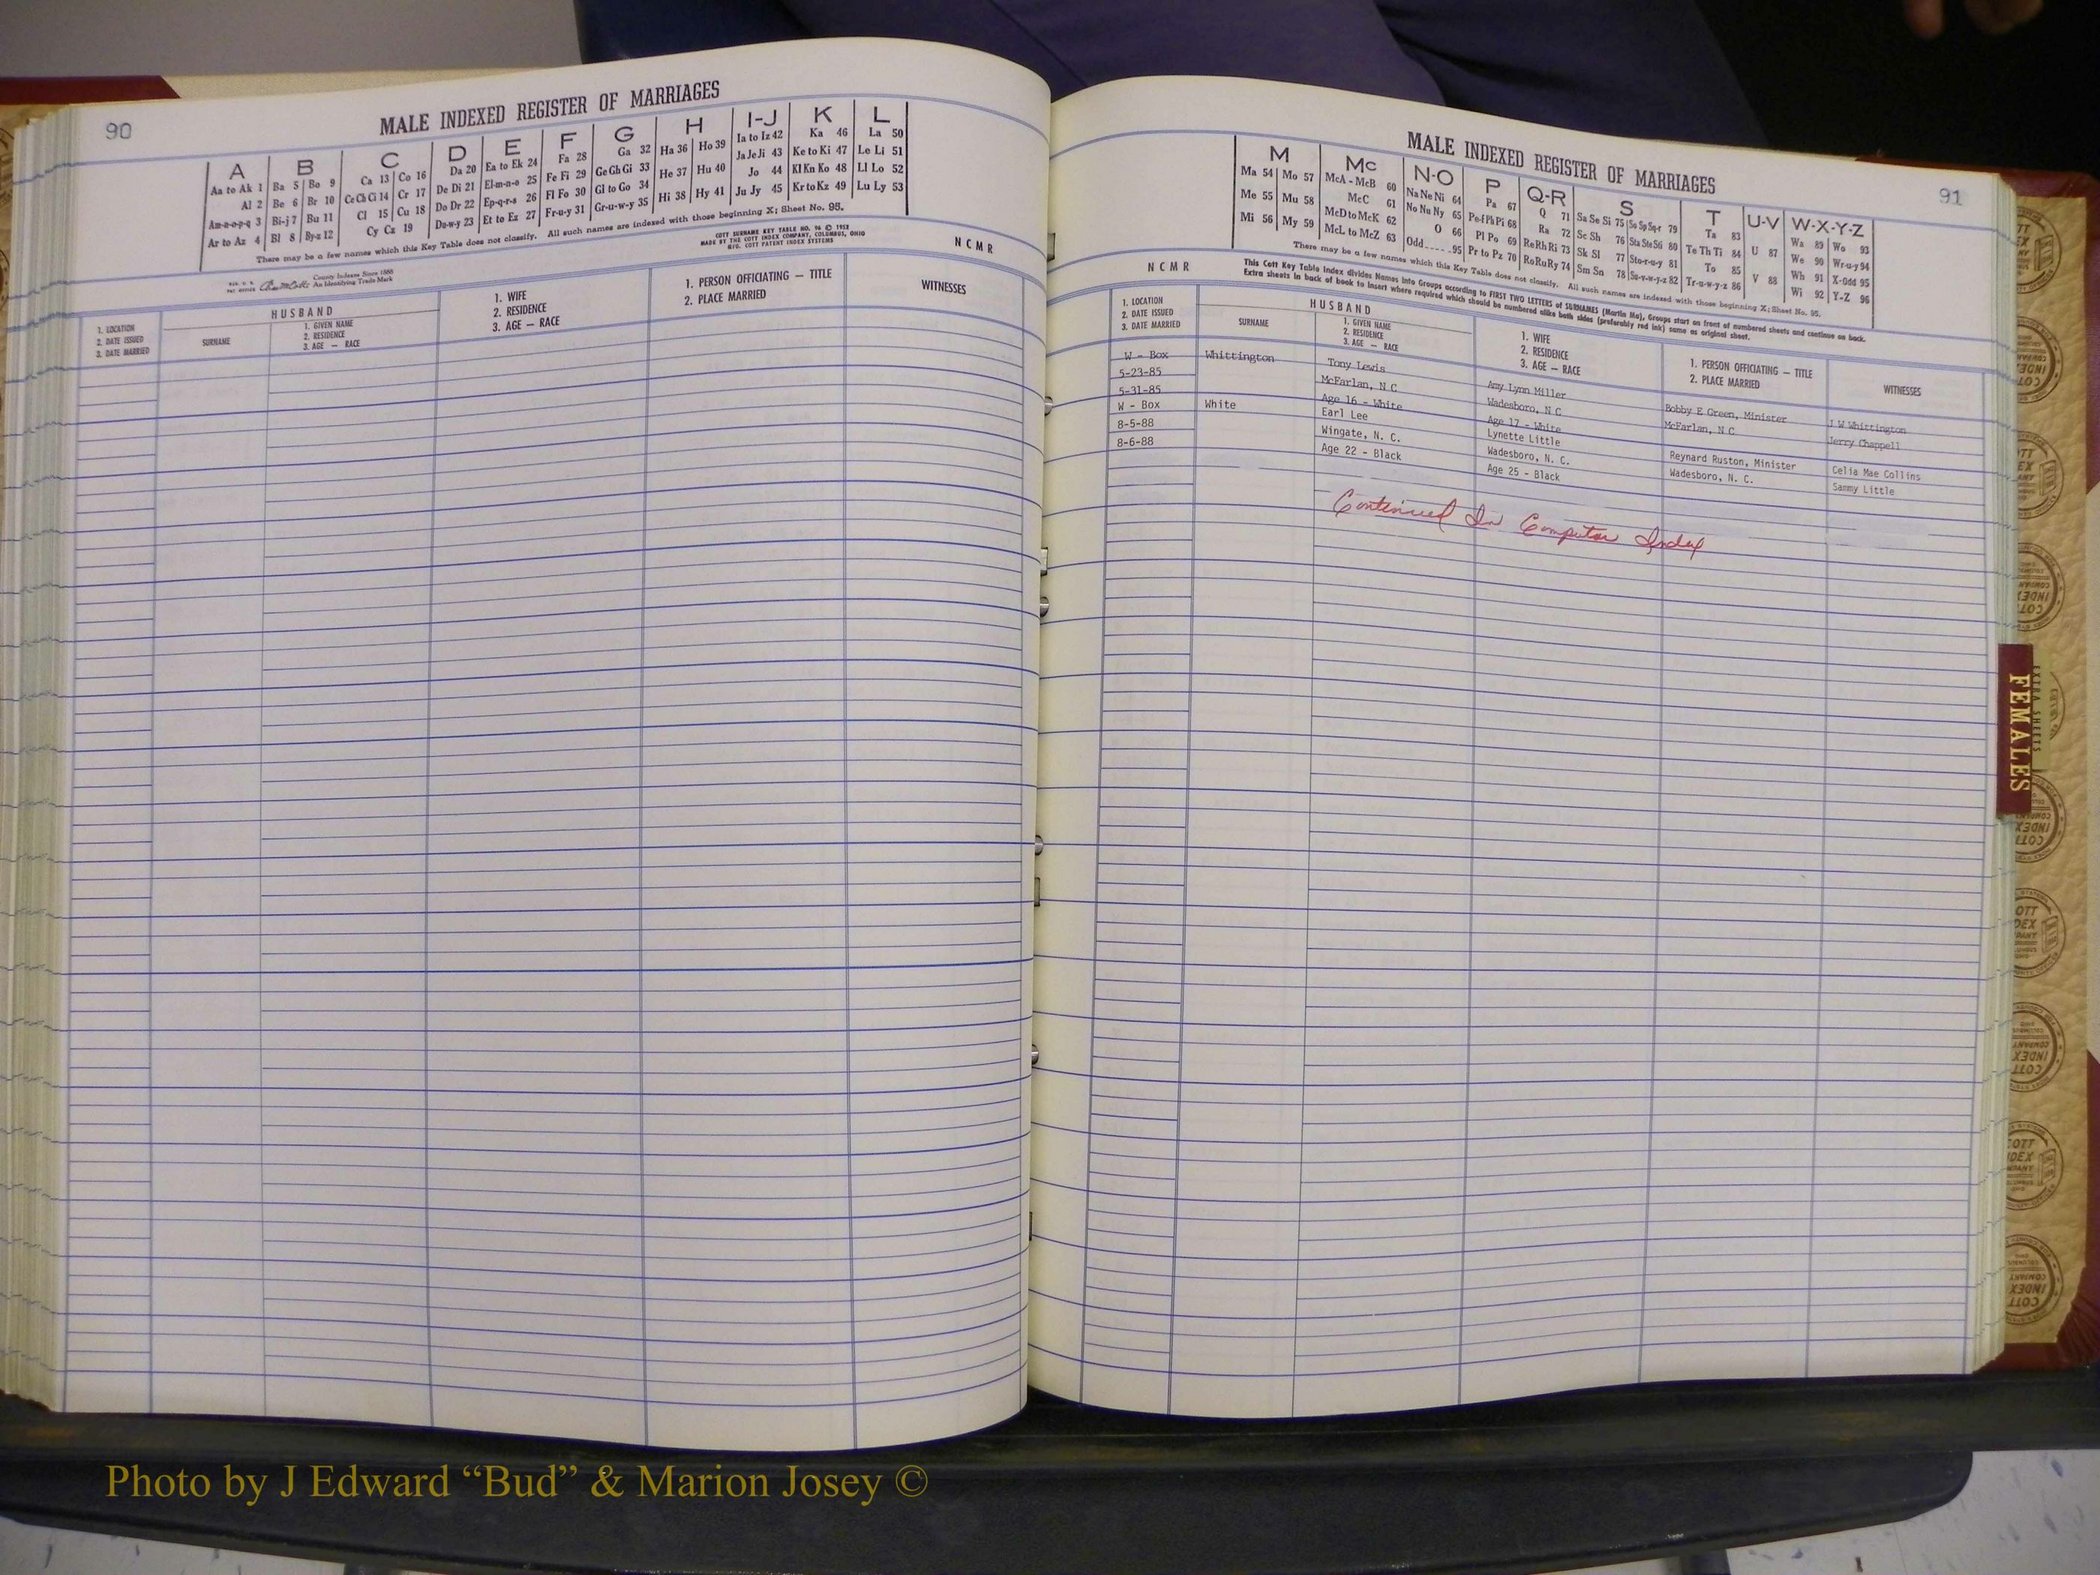 90
MALE INDEXED REGISTER OF MARRIAGES
A B C D E F G H I-J K L
Aa to Ak 1 Ba 5 Bo 9 Ca 13 Co 16 Da 20 Ea to Ek 24 Fa 28 Ga 32 Ha 36 Ho 39 Ia to Iz 42 Ka 46 La 50
Al 2 Be 6 Br 10 Ce Ch Ci 14 Cr 17 De Di 21 El-m-n-o 25 Fe Fi 29 Ge Gh Gi 33 He 37 Hu 40 Ja Je Ji 43 Ke to Ki 47 Le Li 51
Am-n-o-p-q 3 Bi-j 7 Bu 11 Cl 15 Cu 18 Do Dr 22 Ep-q-r-s 26 Fl Fo 30 Gl to Go 34 Hi 38 Hy 41 Jo 44 Kl Kn Ko 48 Ll Lo 52
Ar to Az 4 Bl 8 By-z 12 Cy Cz 19 Du-w-y 23 Et to Ez 27 Fr-u-y 31 Gr-u-w-y 35 Ju Jy 45 Kr to Kz 49 Lu Ly 53
There may be a few names which this Key Table does not classify. All such names are indexed with those beginning X; Sheet No. 95.
COTT SURNAME KEY TABLE NO. 96 © 1953
MADE BY THE COTT INDEX COMPANY, COLUMBUS, OHIO
MFG. COTT PATENT INDEX SYSTEMS
NCMR
County Indexes Since 1888
An Identifying Trade Mark
1. LOCATION
2. DATE ISSUED
3. DATE MARRIED
HUSBAND
SURNAME
1. GIVEN NAME
2. RESIDENCE
3. AGE — RACE
1. WIFE
2. RESIDENCE
3. AGE — RACE
1. PERSON OFFICIATING — TITLE
2. PLACE MARRIED
WITNESSES
91
MALE INDEXED REGISTER OF MARRIAGES
M Mc N-O P Q-R S T U-V W-X-Y-Z
Ma 54 Mo 57 McA - McB 60 Na Ne Ni 64 Pa 67 Q 71 Sa Se Si 75 So Sp Sq-r 79 Ta 83 U 87 Wa 89 Wo 93
Me 55 Mu 58 McC 61 No Nu Ny 65 Pe-f Ph Pi 68 Ra 72 Sc Sh 76 Sta Ste Sti 80 Te Th Ti 84 V 88 We 90 Wr-u-y 94
Mi 56 My 59 McD to McK 62 O 66 Pl Po 69 Re Rh Ri 73 Sk Sl 77 Sto-r-u-y 81 To 85 Wh 91 X-Odd 95
McL to McZ 63 Odd 95 Pr to Pz 70 Ro Ru Ry 74 Sm Sn 78 Su-v-w-y-z 82 Tr-u-w-y-z 86 Wi 92 Y-Z 96
There may be a few names which this Key Table does not classify. All such names are indexed with those beginning X; Sheet No. 95.
NCMR
This Cott Key Table Index divides Names into Groups according to FIRST TWO LETTERS of SURNAMES (Martin Ma), Groups start on front of numbered sheets and continue on back.
Extra sheets in back of book to insert where required which should be numbered alike both sides (preferably red ink) same as original sheet.
1. LOCATION
2. DATE ISSUED
3. DATE MARRIED
HUSBAND
SURNAME
1. GIVEN NAME
2. RESIDENCE
3. AGE — RACE
1. WIFE
2. RESIDENCE
3. AGE — RACE
1. PERSON OFFICIATING — TITLE
2. PLACE MARRIED
WITNESSES
W - Box Whittington Tony Lewis Amy Lynn Miller Bobby E Green, Minister J W Whittington
5-23-85 McFarlan, N C Wadesboro, N C McFarlan, N C Jerry Chappell
5-31-85 Age 16 - White Age 17 - White
W - Box White Earl Lee Lynette Little Reynard Ruston, Minister Celia Mae Collins
8-5-88 Wingate, N. C. Wadesboro, N. C. Wadesboro, N. C. Sammy Little
8-6-88 Age 22 - Black Age 25 - Black
Continued In Computer Index
EXTRA SHEETS
FEMALES
Photo by J Edward “Bud” & Marion Josey ©